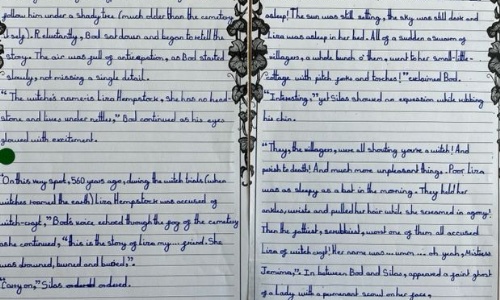 follow him under a shady tree (much older than the cemetery
itself). Reluctantly, Bod sat down and began to retell the
story. The air was full of anticepation, as Bod started
slowly, not missing a single detail.
"The witche's name is Liza Hempstock, she has no head
stone and lives under nettles," Bod continued as his eyes
glowed with excitement.
"On this very spot, 560 years ago, during the witch trials (when
witches roamed the earth) Liza Hempstock was accused of
witch-crapt," Bod's voice echoed through the fog of the cemetery
as he continued, "this is the story of Liza my... friend. She
was drowned, burned and buried,".
"Carry on," Silas ordered.
asleep! The sun was still setting, the sky was still dark and
Liza was asleep in her bed. All of a sudden a swarm of
villagers, a whole bunch o' them, went to her small little
cottage with pitch forks and torches!" exclaimed Bod.
"Interesting," yet Silas showed no expression while rubbing
his chin.
"They, the villagers, were all shouting you're a witch! And
perish to death! And much more unpleasant things. Poor Liza
was as sleepy as a bat in the morning. They held her
ankles, wrists and pulled her hair while she screamed in agony!
Then the fattest, worst one of them all accused
Liza of witch crapt! Her name was ... umm ... oh yeah, Mistress
Jemima,". In between Bod and Silas, appeared a faint ghost
of a lady with a permanent scowl on her face,